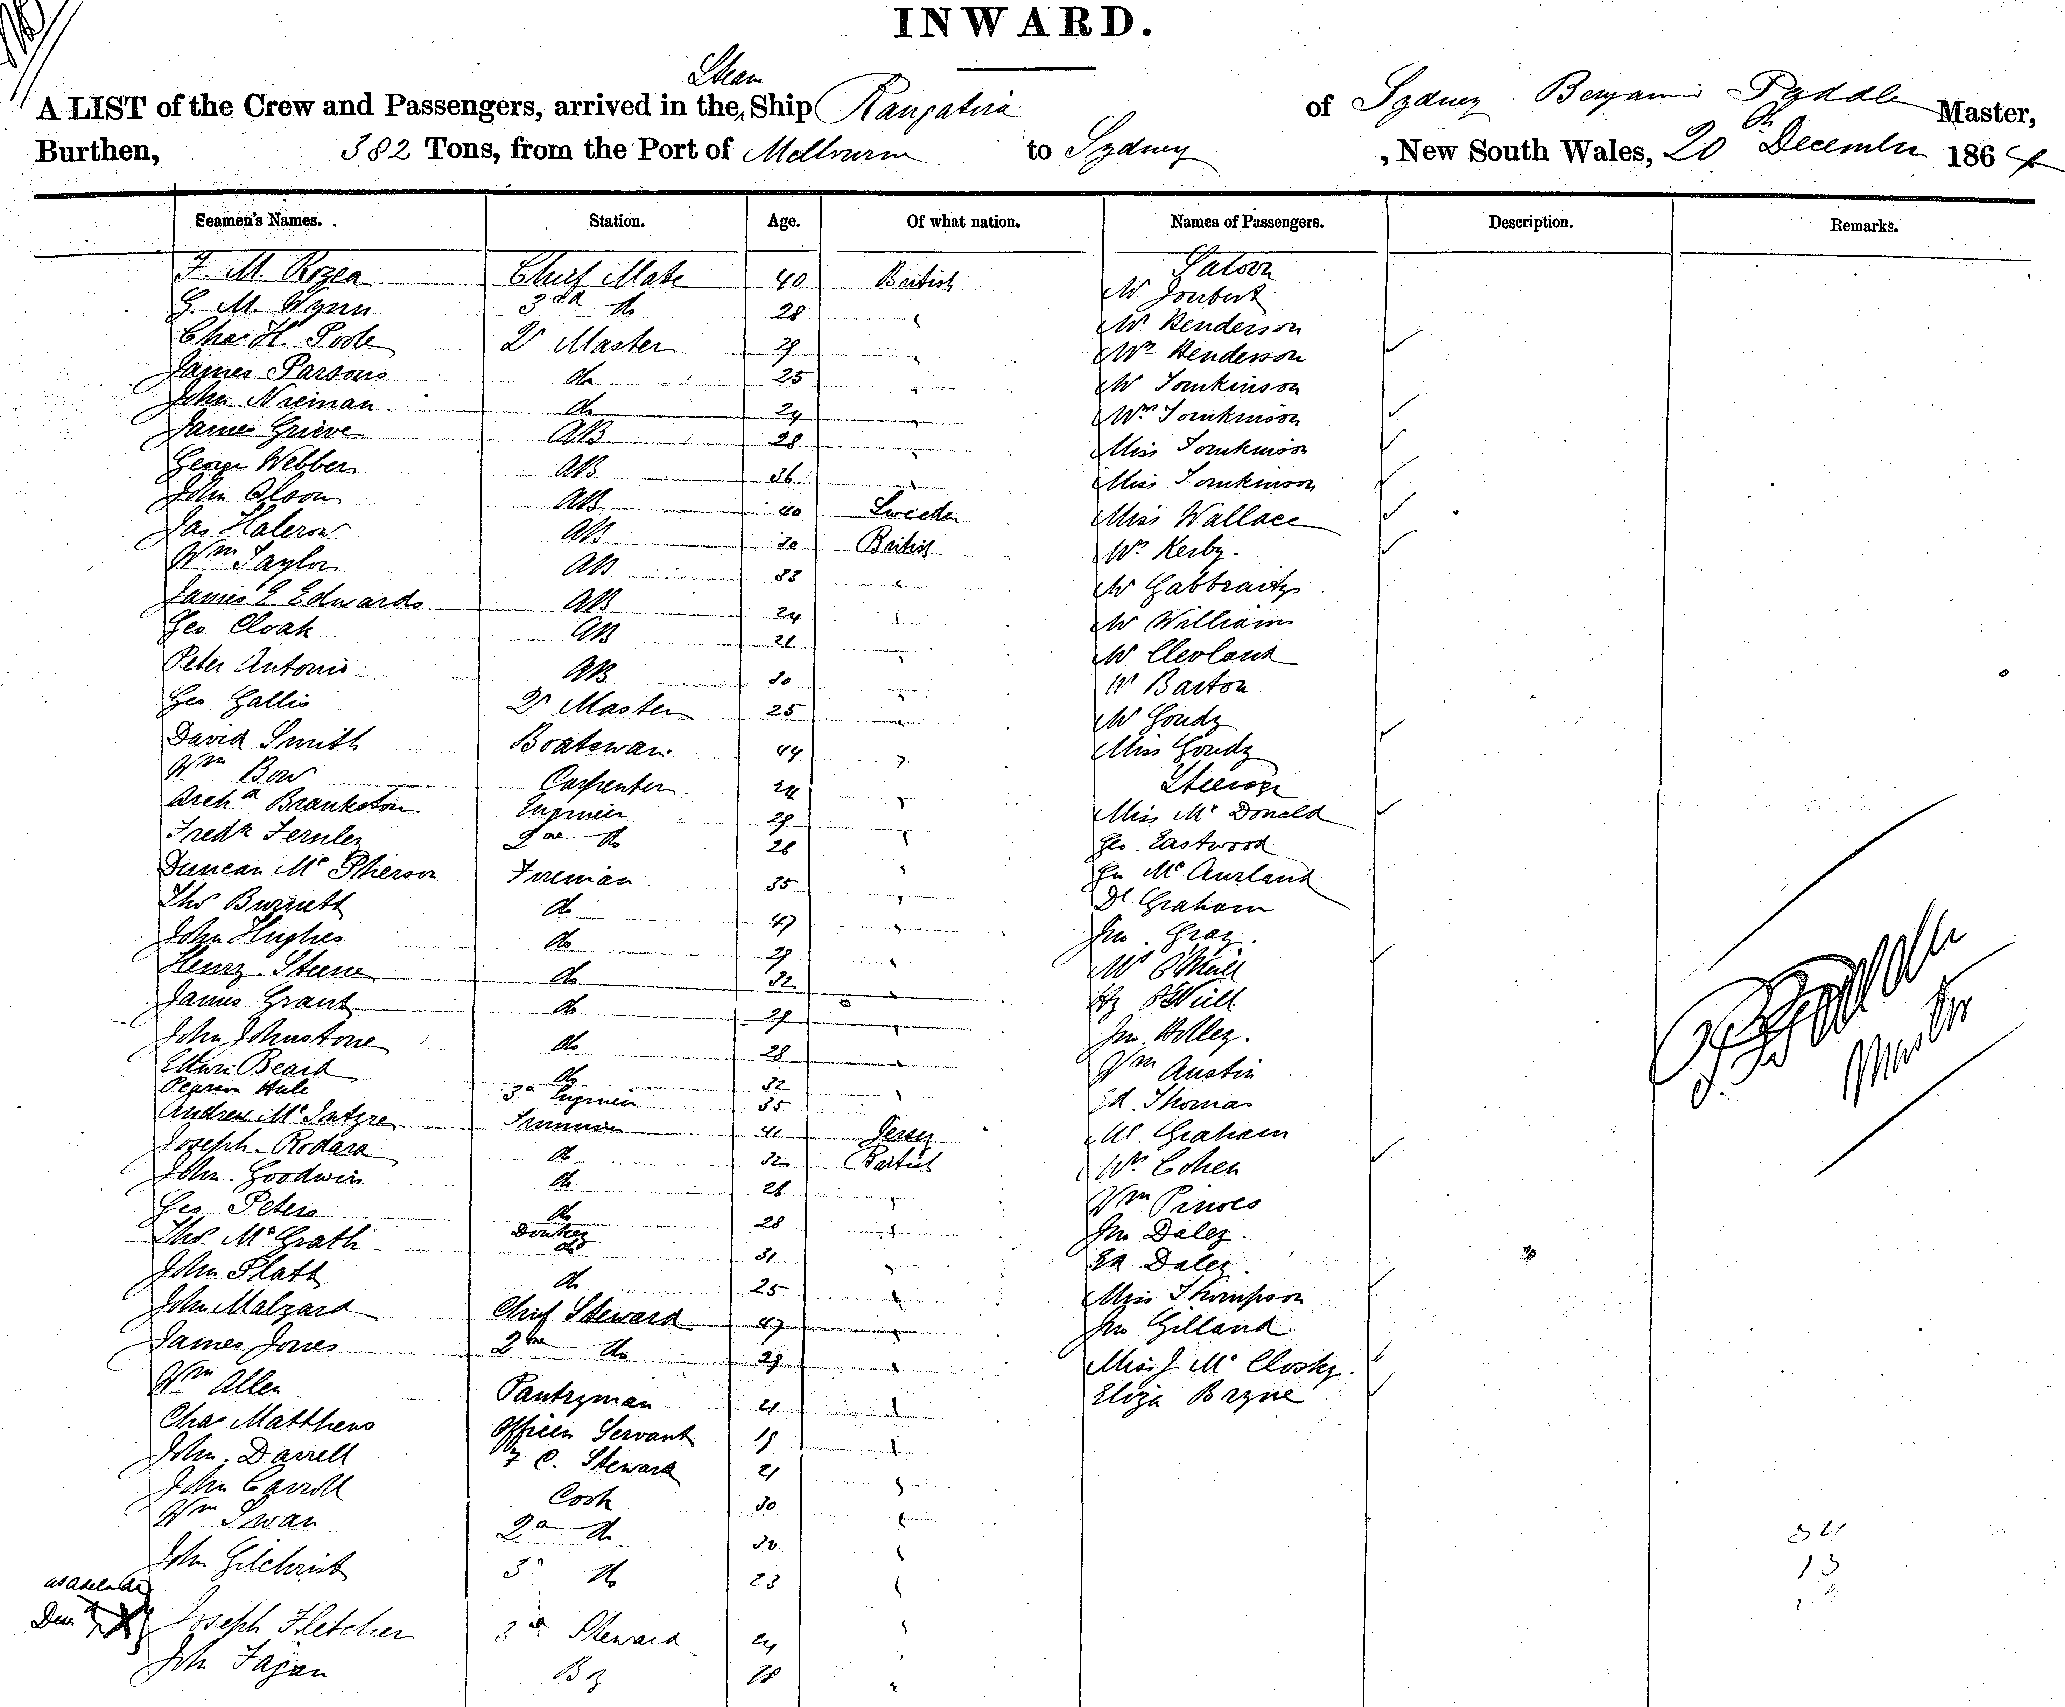 INWARD.
Steam
A LIST of the Crew and Passengers, arrived in the Ship Rangatira of Sydney Benjamin Master,
Burthen, 382 Tons, from the Port of Melbourne to Sydney, New South Wales, 20th December 1864
Seamen's Names. Station. Age. Of what nation. Names of Passengers. Description. Remarks.
Saloon
Chief Mate 40 British Mr Joubert
G. M. 3rd do 28 " Mr Henderson
Chas H. Poole Qr Master 29 " Mrs Henderson
James Parsons do 25 " Mr Tomkinson
John do 24 " Mrs Tomkinson
James Grieve AB 28 " Miss Tomkinson
George Webber AB 36 " Miss Tomkinson
John Olson AB 40 Sweden Miss Wallace
Jas Halcrow AB 30 British Mrs Kerby
Wm Taylor AB 33 " Mr
James E Edwards AB 24 " Mr Williams
Geo Cloak AB 21 " Mr Cleoland
Peter Antonio AB 30 " Mr Barton
Geo Gallis Qr Master 25 " Mr Goudy
David Smith Boatswain 44 " Miss Goudy
Wm Bow Carpenter 24 " Steerage
Archd Brankston Engineer 29 " Miss McDonald
Fredk Fernley 2nd do 28 " Geo Eastwood
Duncan McPherson Fireman 35 "
Thos Burnett do 47 " Dl Graham
John Hughes do 29 " Jno Gray
Henry do 32 " Mrs O'Neill
James Grant do 29 " O'Neill
John Johnstone do 28 " Jno Holley
Beard do 32 " Wm Austin
3rd Engineer 35 " Thomas
Andrew McIntyre Trimmer 41 Jersey Graham
Joseph Rodara do 32 British Mrs Cohen
John Goodwin do 26 " Wm
Geo Peters do 28 " Jno Daley
Thos McGrath Donkey do 31 " Ed Daley
John Platt do 25 " Miss Thompson
John Malzard Chief Steward 47 " Jno Gilland
James Jones 2nd do 29 " Miss J McClosky
Wm Allen Pantryman 21 " Eliza Bryne
Chas Matthews Officers Servant 19 "
John Darrell F. C. Steward 21 "
John Carroll Cook 30 "
Wm Swan 2nd do 30 "
John Gilchrist 3rd do 23 "
Joseph Fletcher 3rd Steward 24 "
Jn Fagan Boy 18 "
Master
34
13